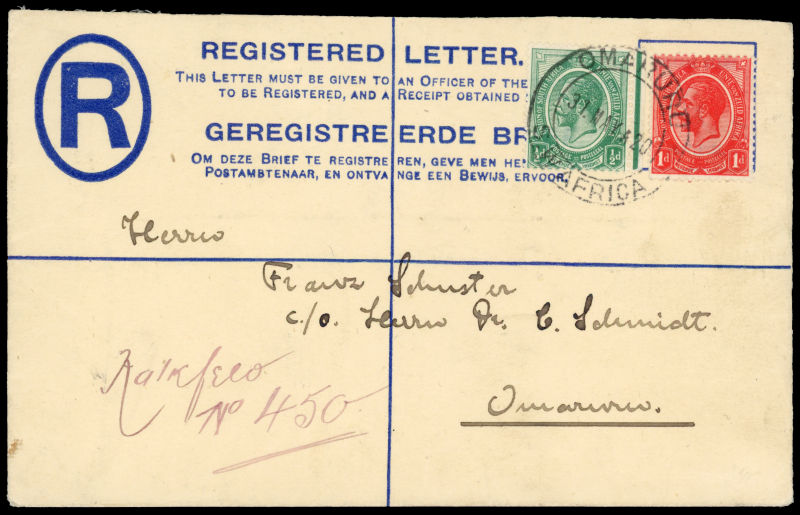 R
REGISTERED LETTER.
THIS LETTER MUST BE GIVEN TO AN OFFICER OF THE
TO BE REGISTERED, AND A RECEIPT OBTAINED
GEREGISTREERDE BR
OM DEZE BRIEF TE REGISTREREN, GEVE MEN HE
POSTAMBTENAAR, EN ONTVANGE EEN BEWIJS, ERVOOR
½d
1d 1d
AFRICA
Herrn
Franz Schuster
c/o. Herrn Dr. C. Schmidt.
Omaruru.
Kalkfeld
No 450